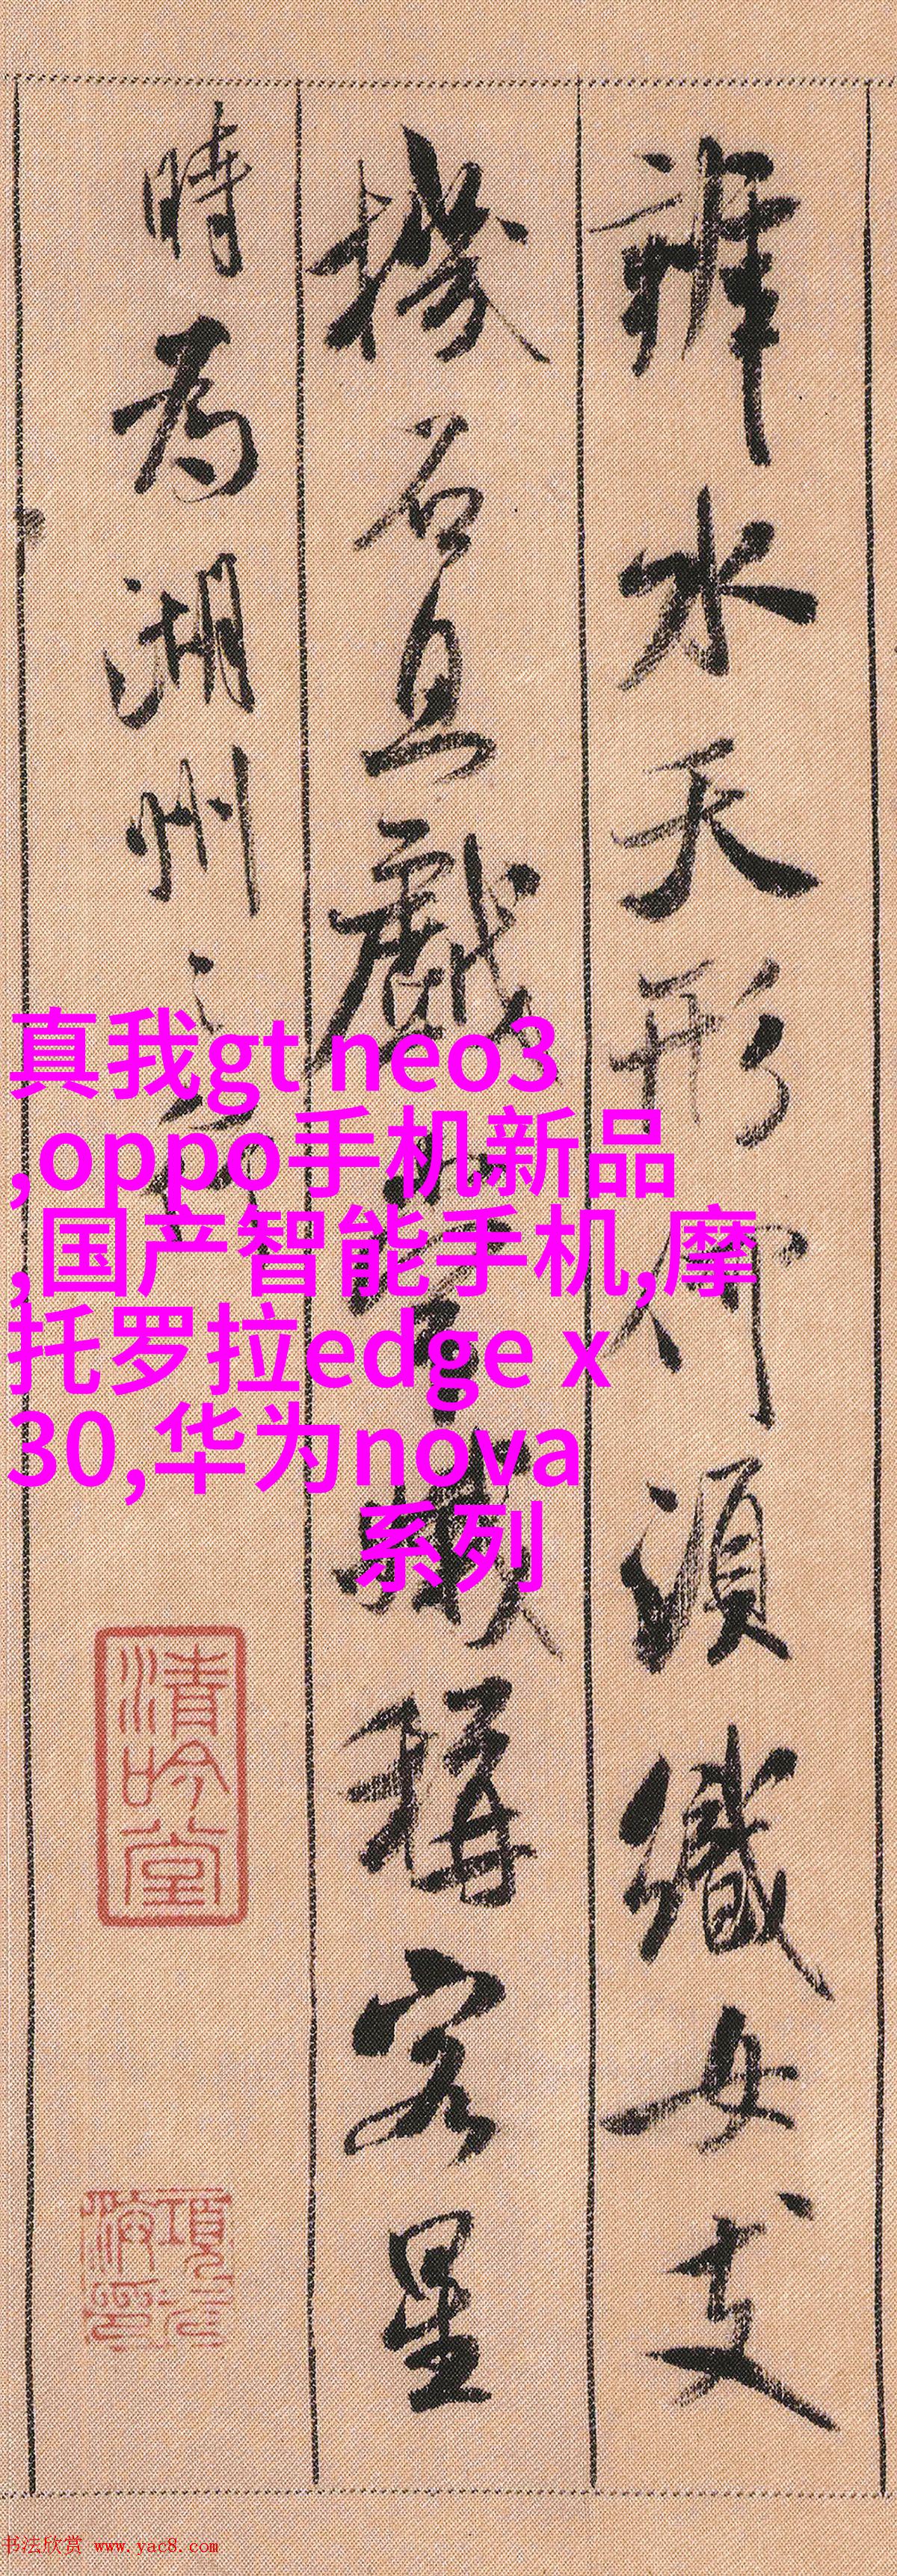 辨水天形何須織女支
機石且戲常娥稱客星
時為湖州之行
真我gt neo3
,oppo手机新品
,国产智能手机,摩
托罗拉edge x
30,华为nova
系列
清吟堂
书法欣赏 www.yac8.com